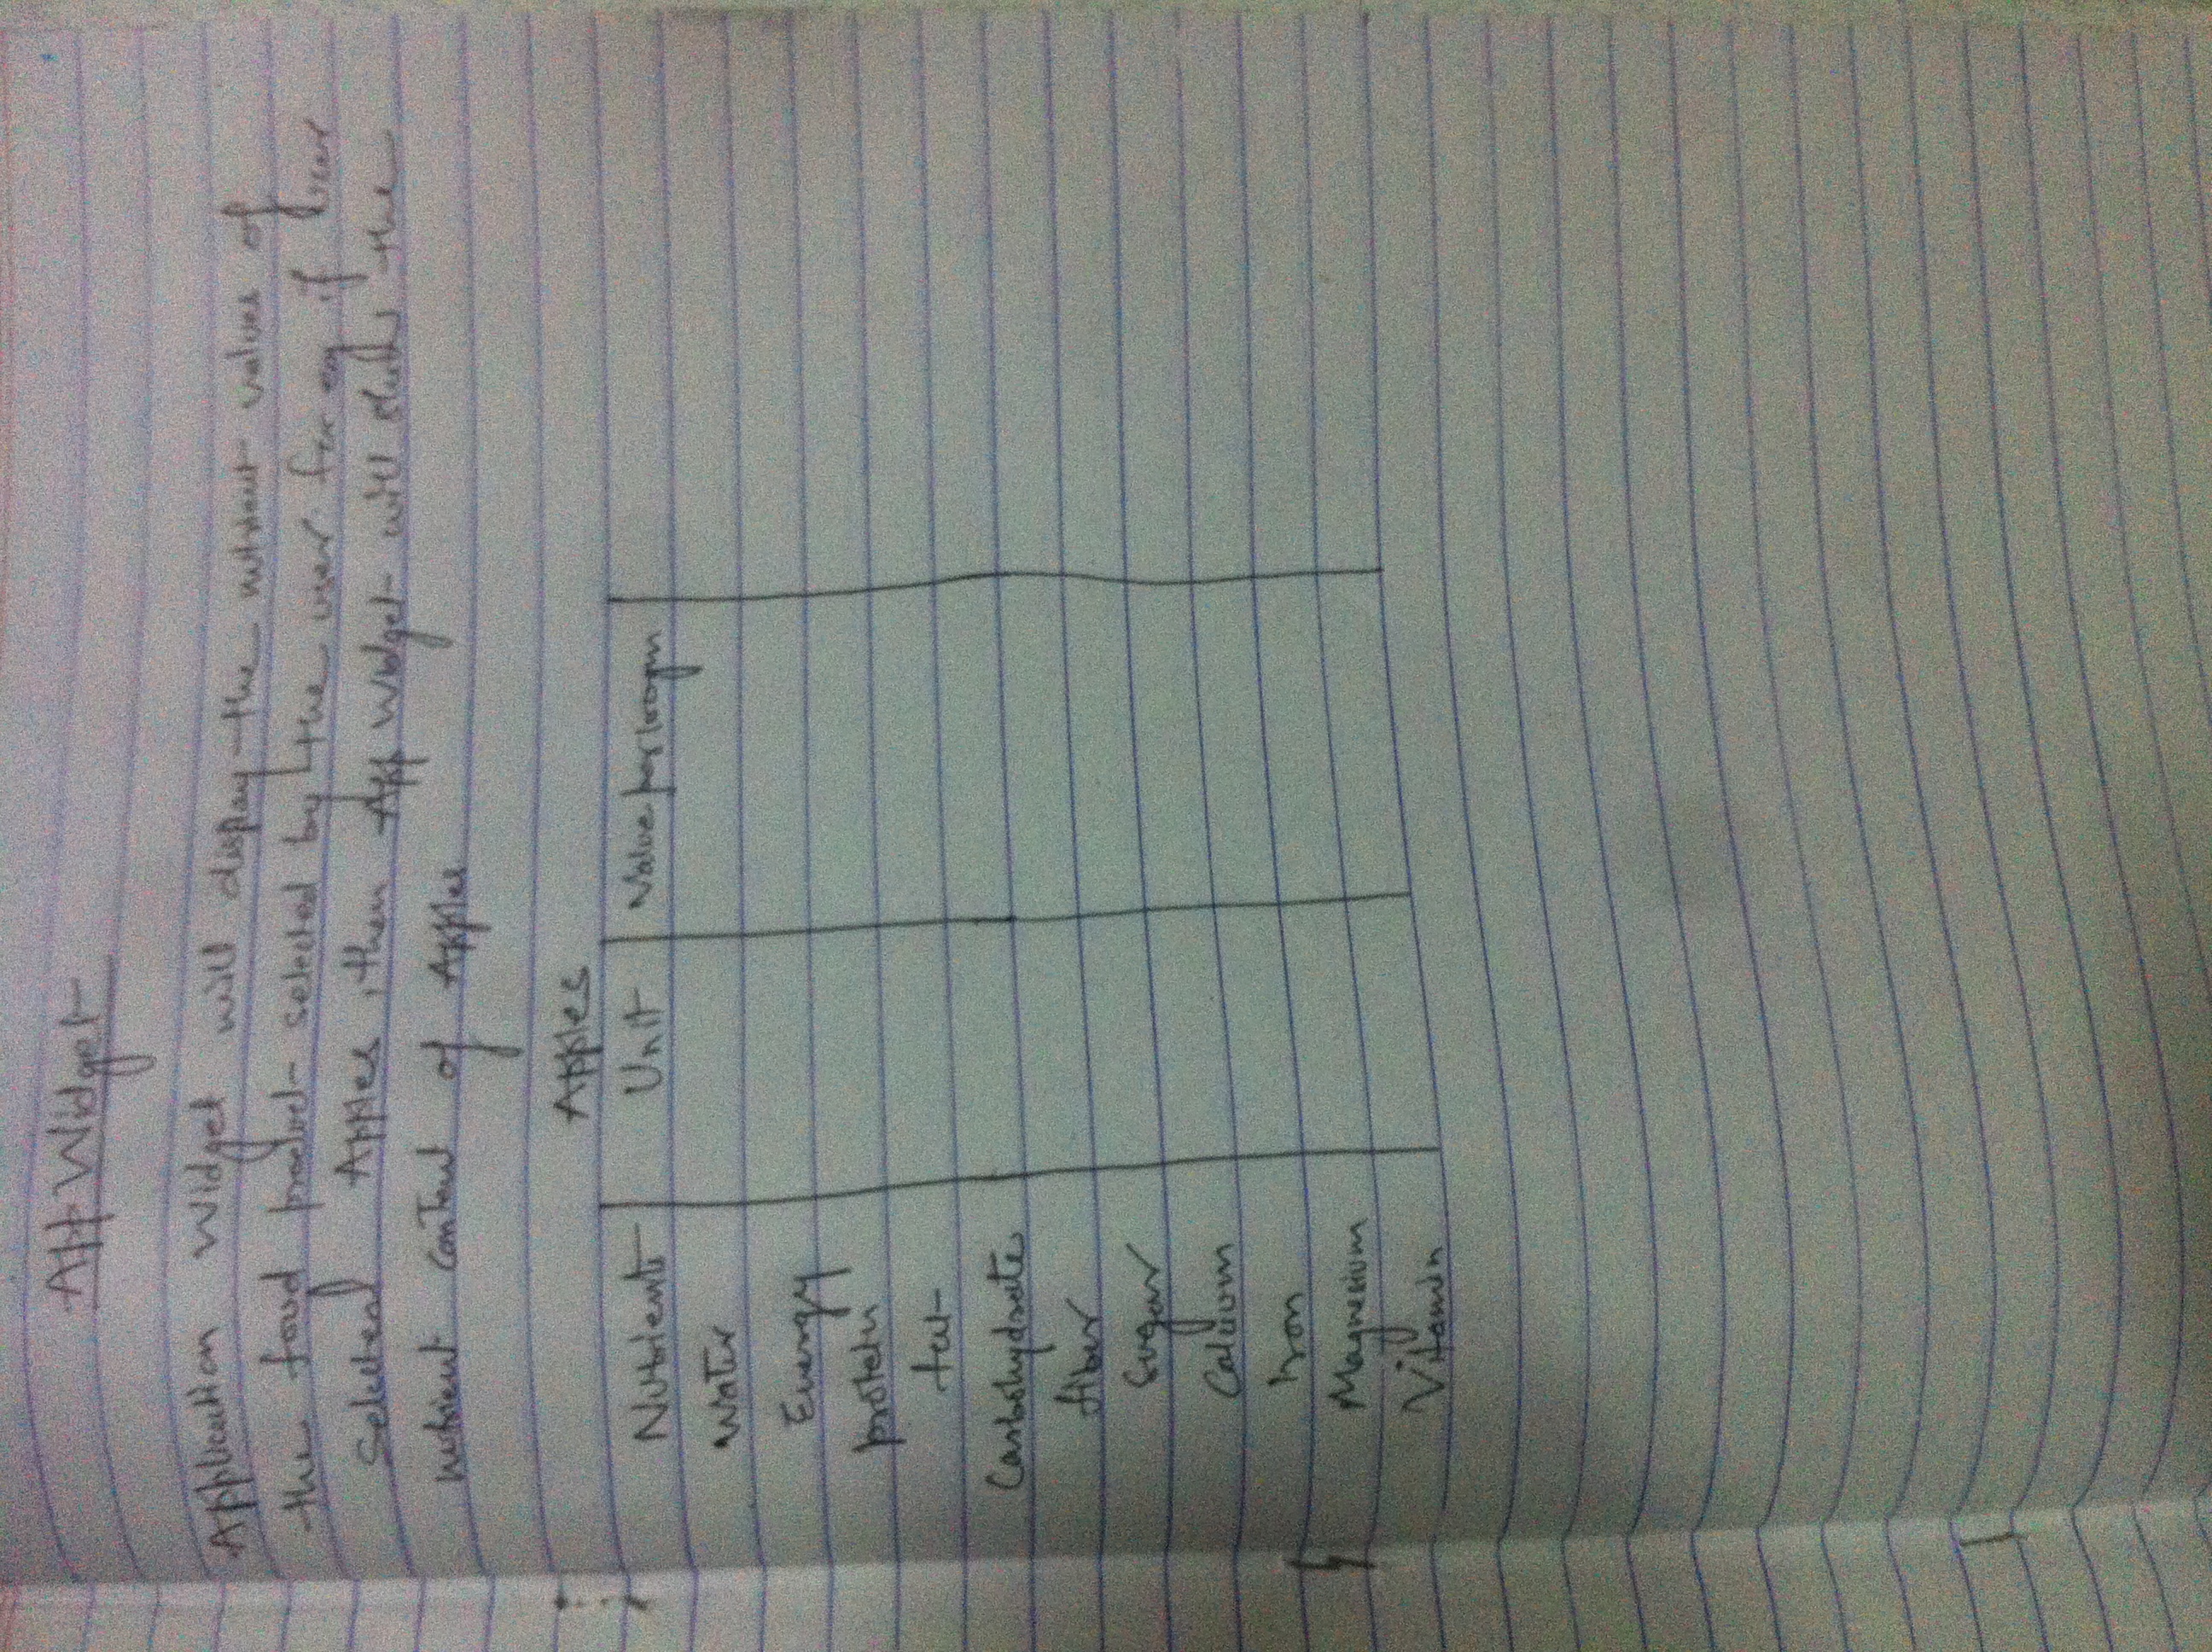 App Widget
Application Widget will display the nutrient values of
the food product selected by the user for eg if user
Selected Apples, then App widget will display the
nutrient content of Apples
Apples
Nutrients Unit Value per 100gm
Water
Energy
protein
fat
Carbohydrates
fiber
Sugar
Calcium
Iron
Magnesium
Vitamin